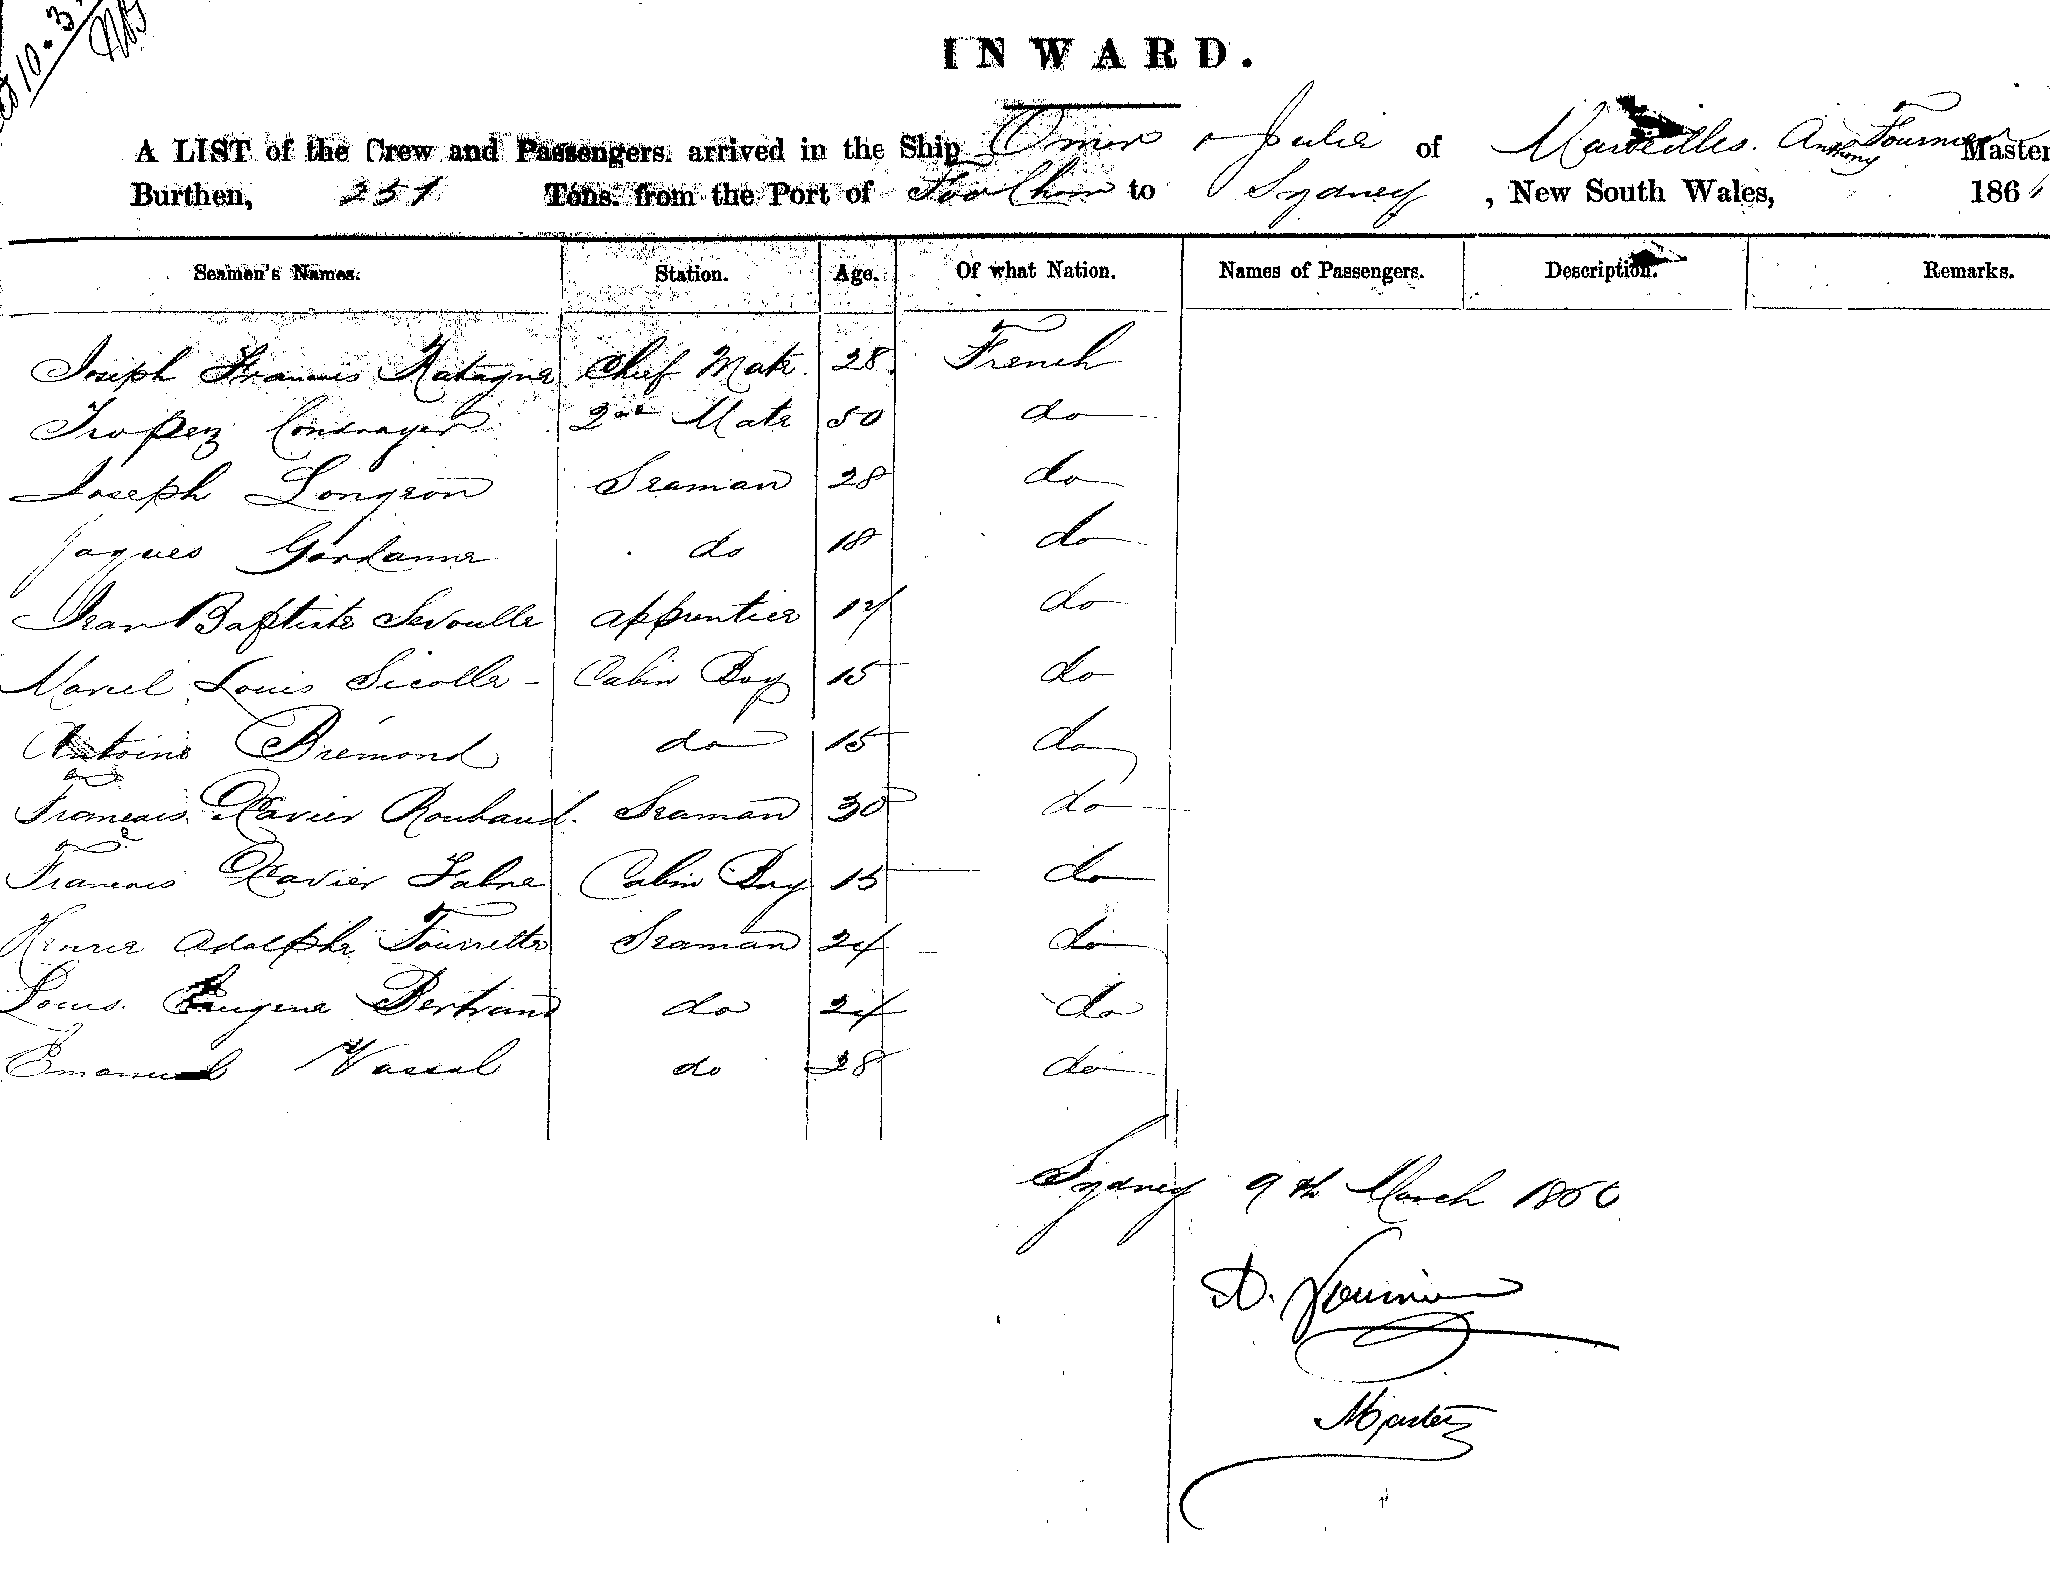 10.3.
INWARD.
A LIST of the Crew and Passengers arrived in the Ship Omer & Julie of Marseilles. Anthony Fournier Master
Burthen, 251 Tons, from the Port of to Sydney, New South Wales, 186
Seamen's Names. Station. Age. Of what Nation. Names of Passengers. Description. Remarks.
Joseph Francois Chief Mate. 28 French
Tropez 2nd Mate 50 do
Joseph Longron Seaman 28 do
Jaques do 18 do
Jean Baptiste apprentice 17 do
Louis Sicolle - Cabin Boy 15 do
Antoine Bremond do 15 do
Francois Xavier Roubaud. Seaman 30 do
Francois Xavier Fabre Cabin Boy 15 do
Adolphe Tourrette Seaman 24 do
Louis Eugene Bertrand do 24 do
Emanuel Vassal do 28 do
Sydney 9th March 1866
A. Fournier
Master